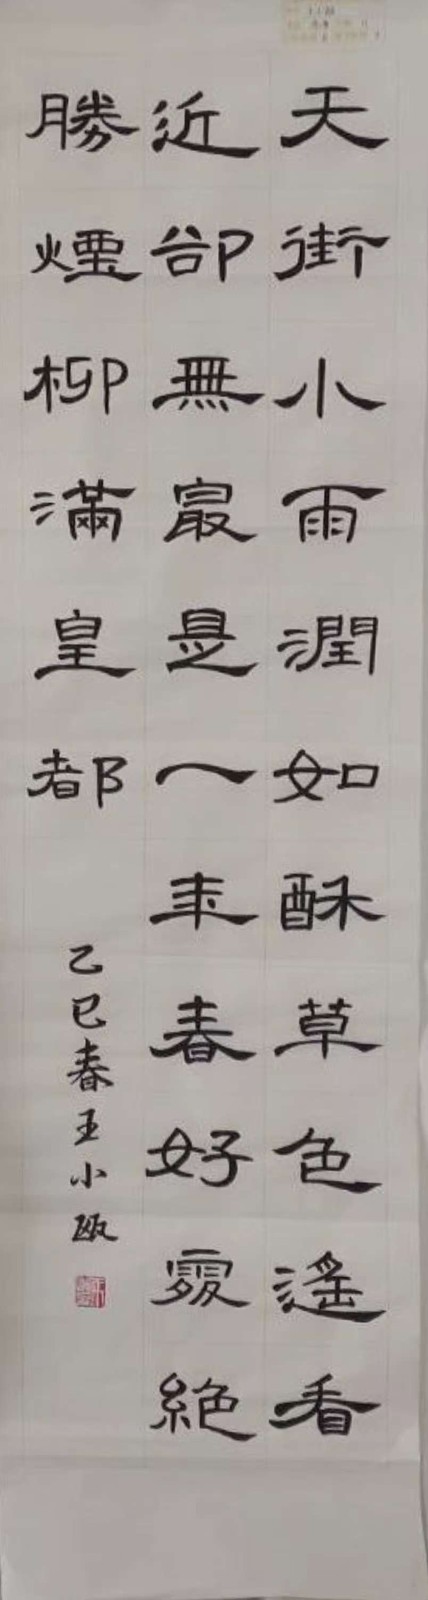 天街小雨潤如酥草色遙看
近卻無最是一年春好處絕
勝煙柳滿皇都
乙巳春王小瓯